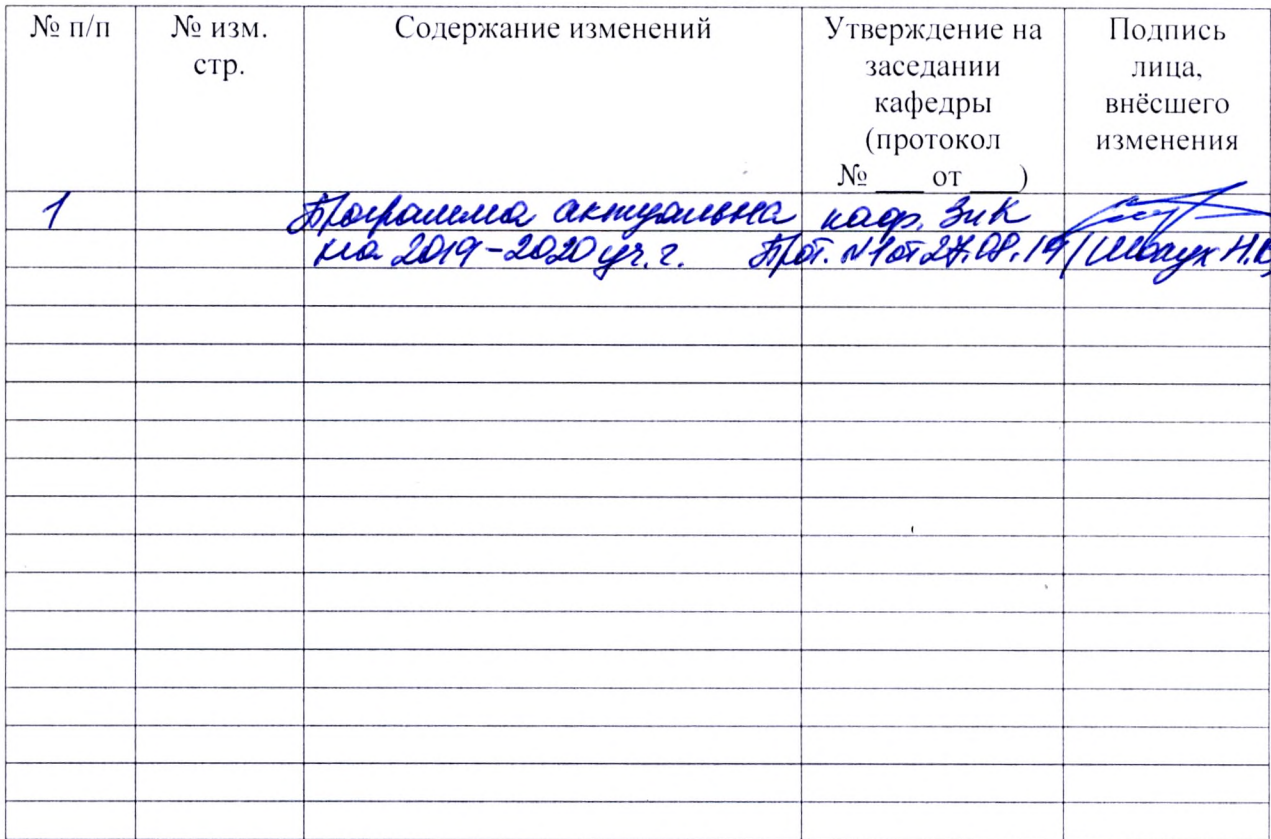 № п/п № изм. стр. Содержание изменений Утверждение на заседании кафедры (протокол № ___ от ___) Подпись лица, внёсшего изменения
1 Программа актуальна кафр. ЗиК
на 2019-2020 уч. г. Прот. №1 от 27.08.19